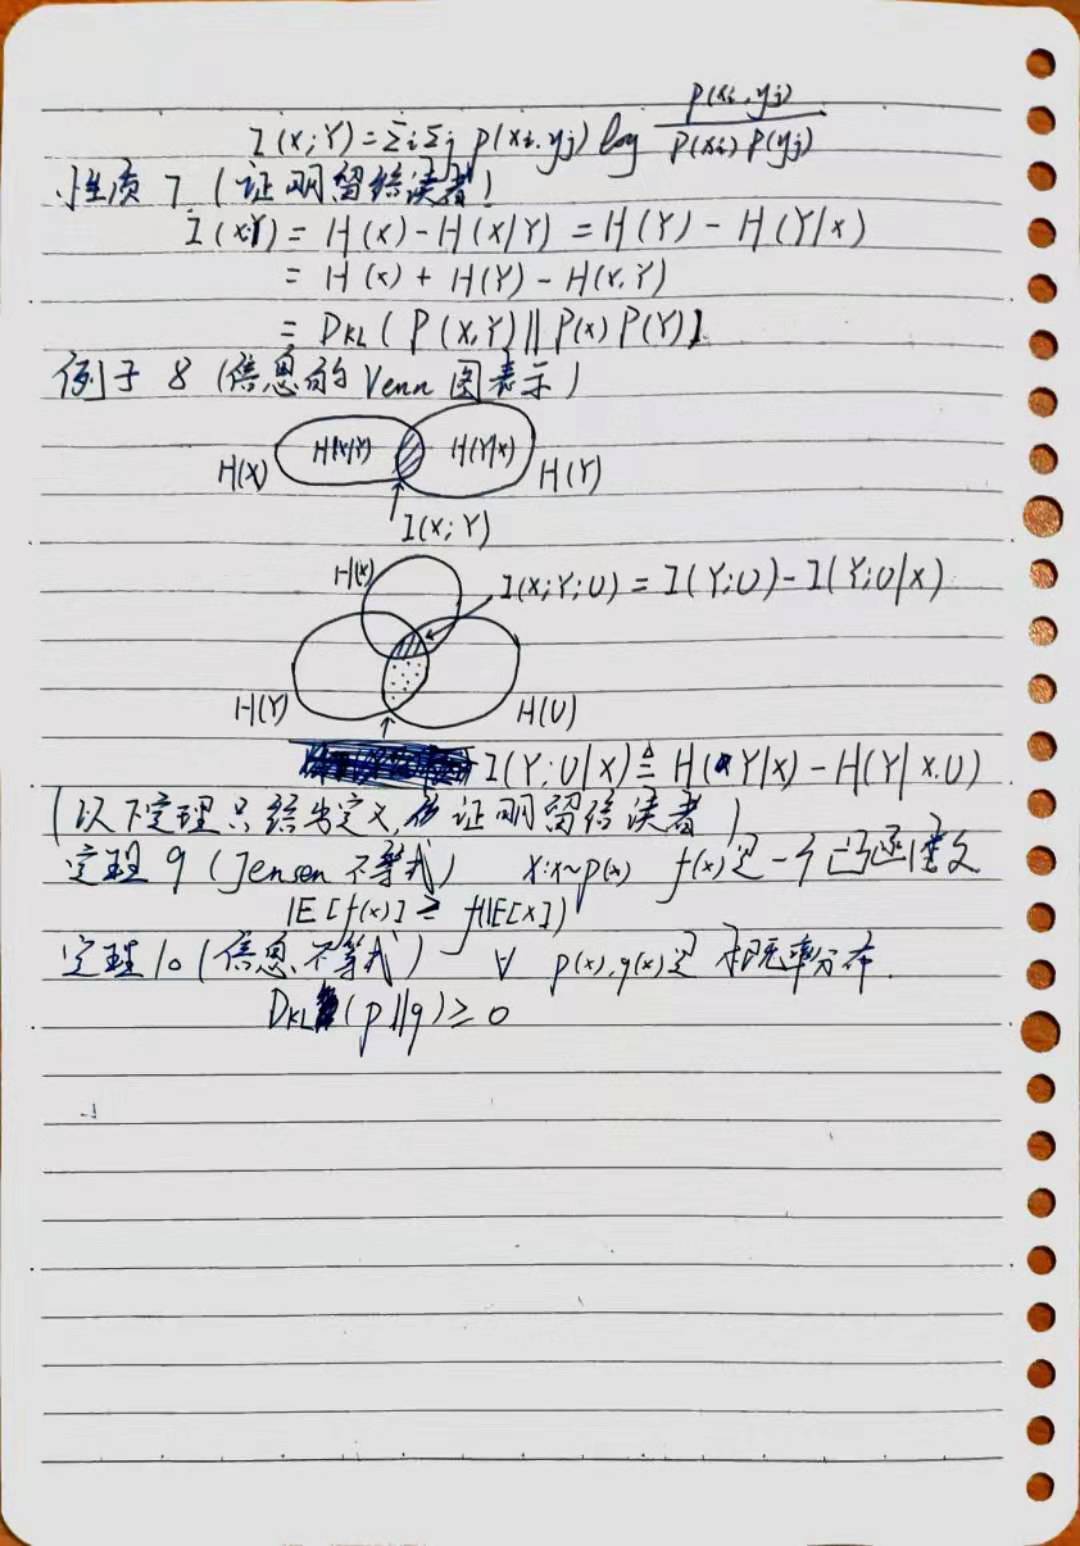 I(X;Y)=Σi Σj p(xi,yj) log p(xi,yj) / p(xi) p(yj)
性质 7 (证明留给读者)
I(X;Y) = H(X) - H(X|Y) = H(Y) - H(Y|X)
= H(X) + H(Y) - H(X,Y)
= DKL ( P(X,Y) || P(X) P(Y) )
例子 8 (信息的 Venn 图表示)
H(X) H(X|Y) H(Y|X) H(Y)
I(X;Y)
H(X) I(X;Y;U) = I(Y;U) - I(Y;U|X)
H(Y) H(U)
I(Y;U|X) ≜ H(Y|X) - H(Y|X,U)
(以下定理只给出定义, 证明留给读者)
定理 9 (Jensen 不等式) X:x~p(x) f(x)是一个凸函数
IE[f(x)] ≥ f(IE[x])
定理 10 (信息不等式) ∀ p(x),q(x)是概率分布.
DKL(p||q) ≥ 0